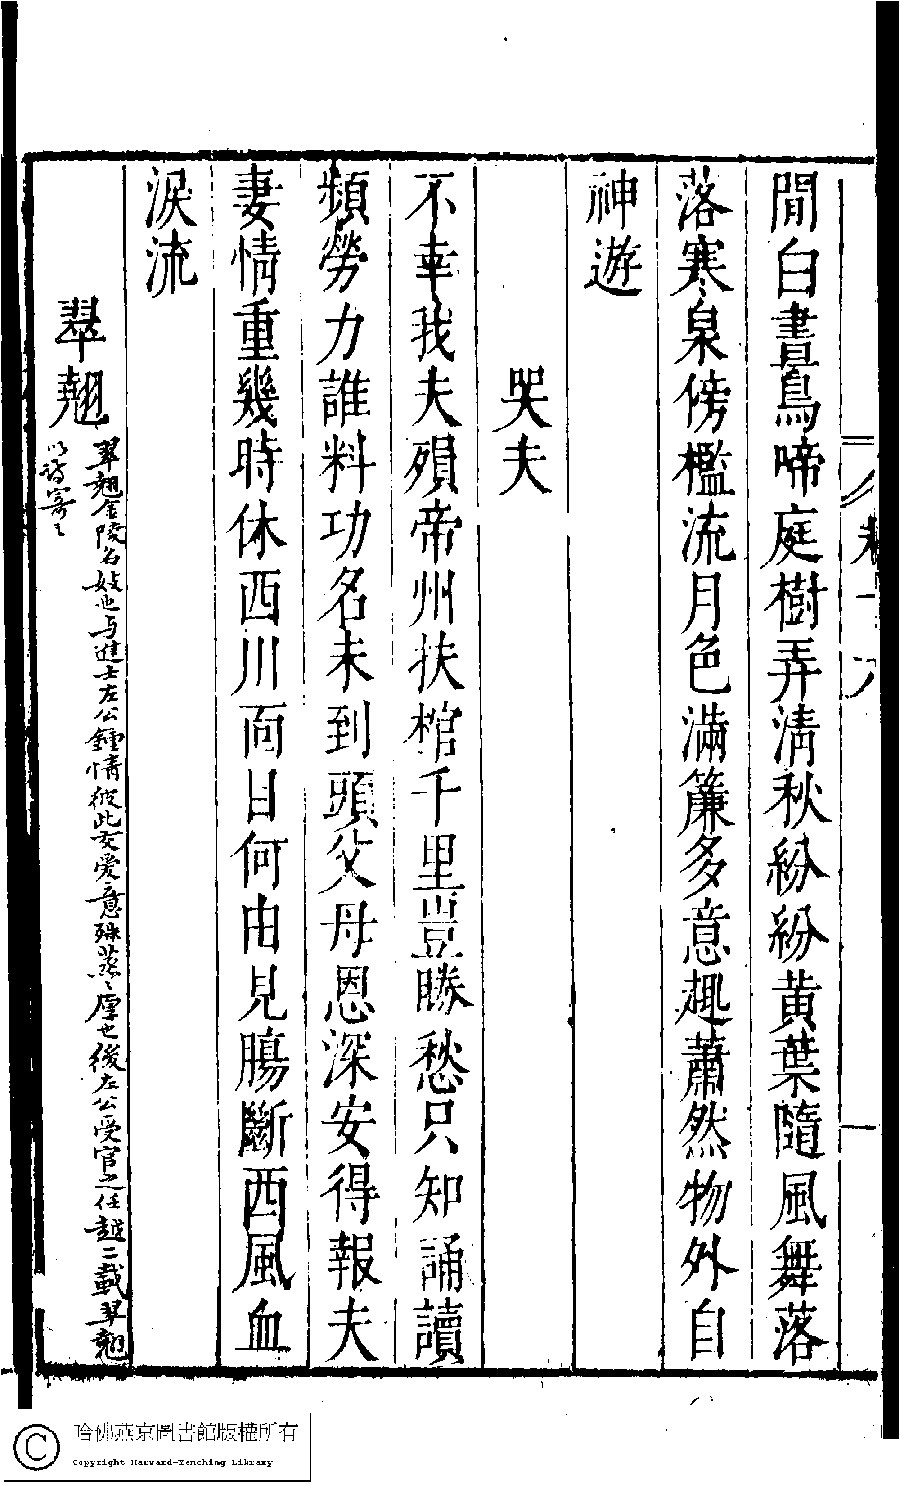 閒白晝鳥啼庭樹弄清秋紛紛黄葉隨風舞落
落寒泉傍檻流月色滿簾多意趣蕭然物外自
神遊
哭夫
不幸我夫殞帝州扶棺千里豈勝愁只知誦讀
頻勞力誰料功名未到頭父母恩深安得報夫
妻情重幾時休西川面目何由見腸斷西風血
淚流
翠翹
翠翹金陵名妓也与進士左公鍾情彼此交愛意殊蒸〻厚也後左公受官之任越二載翠翹
以詩寄之
哈佛燕京圖書館版權所有
Copyright Harvard-Yenching Library